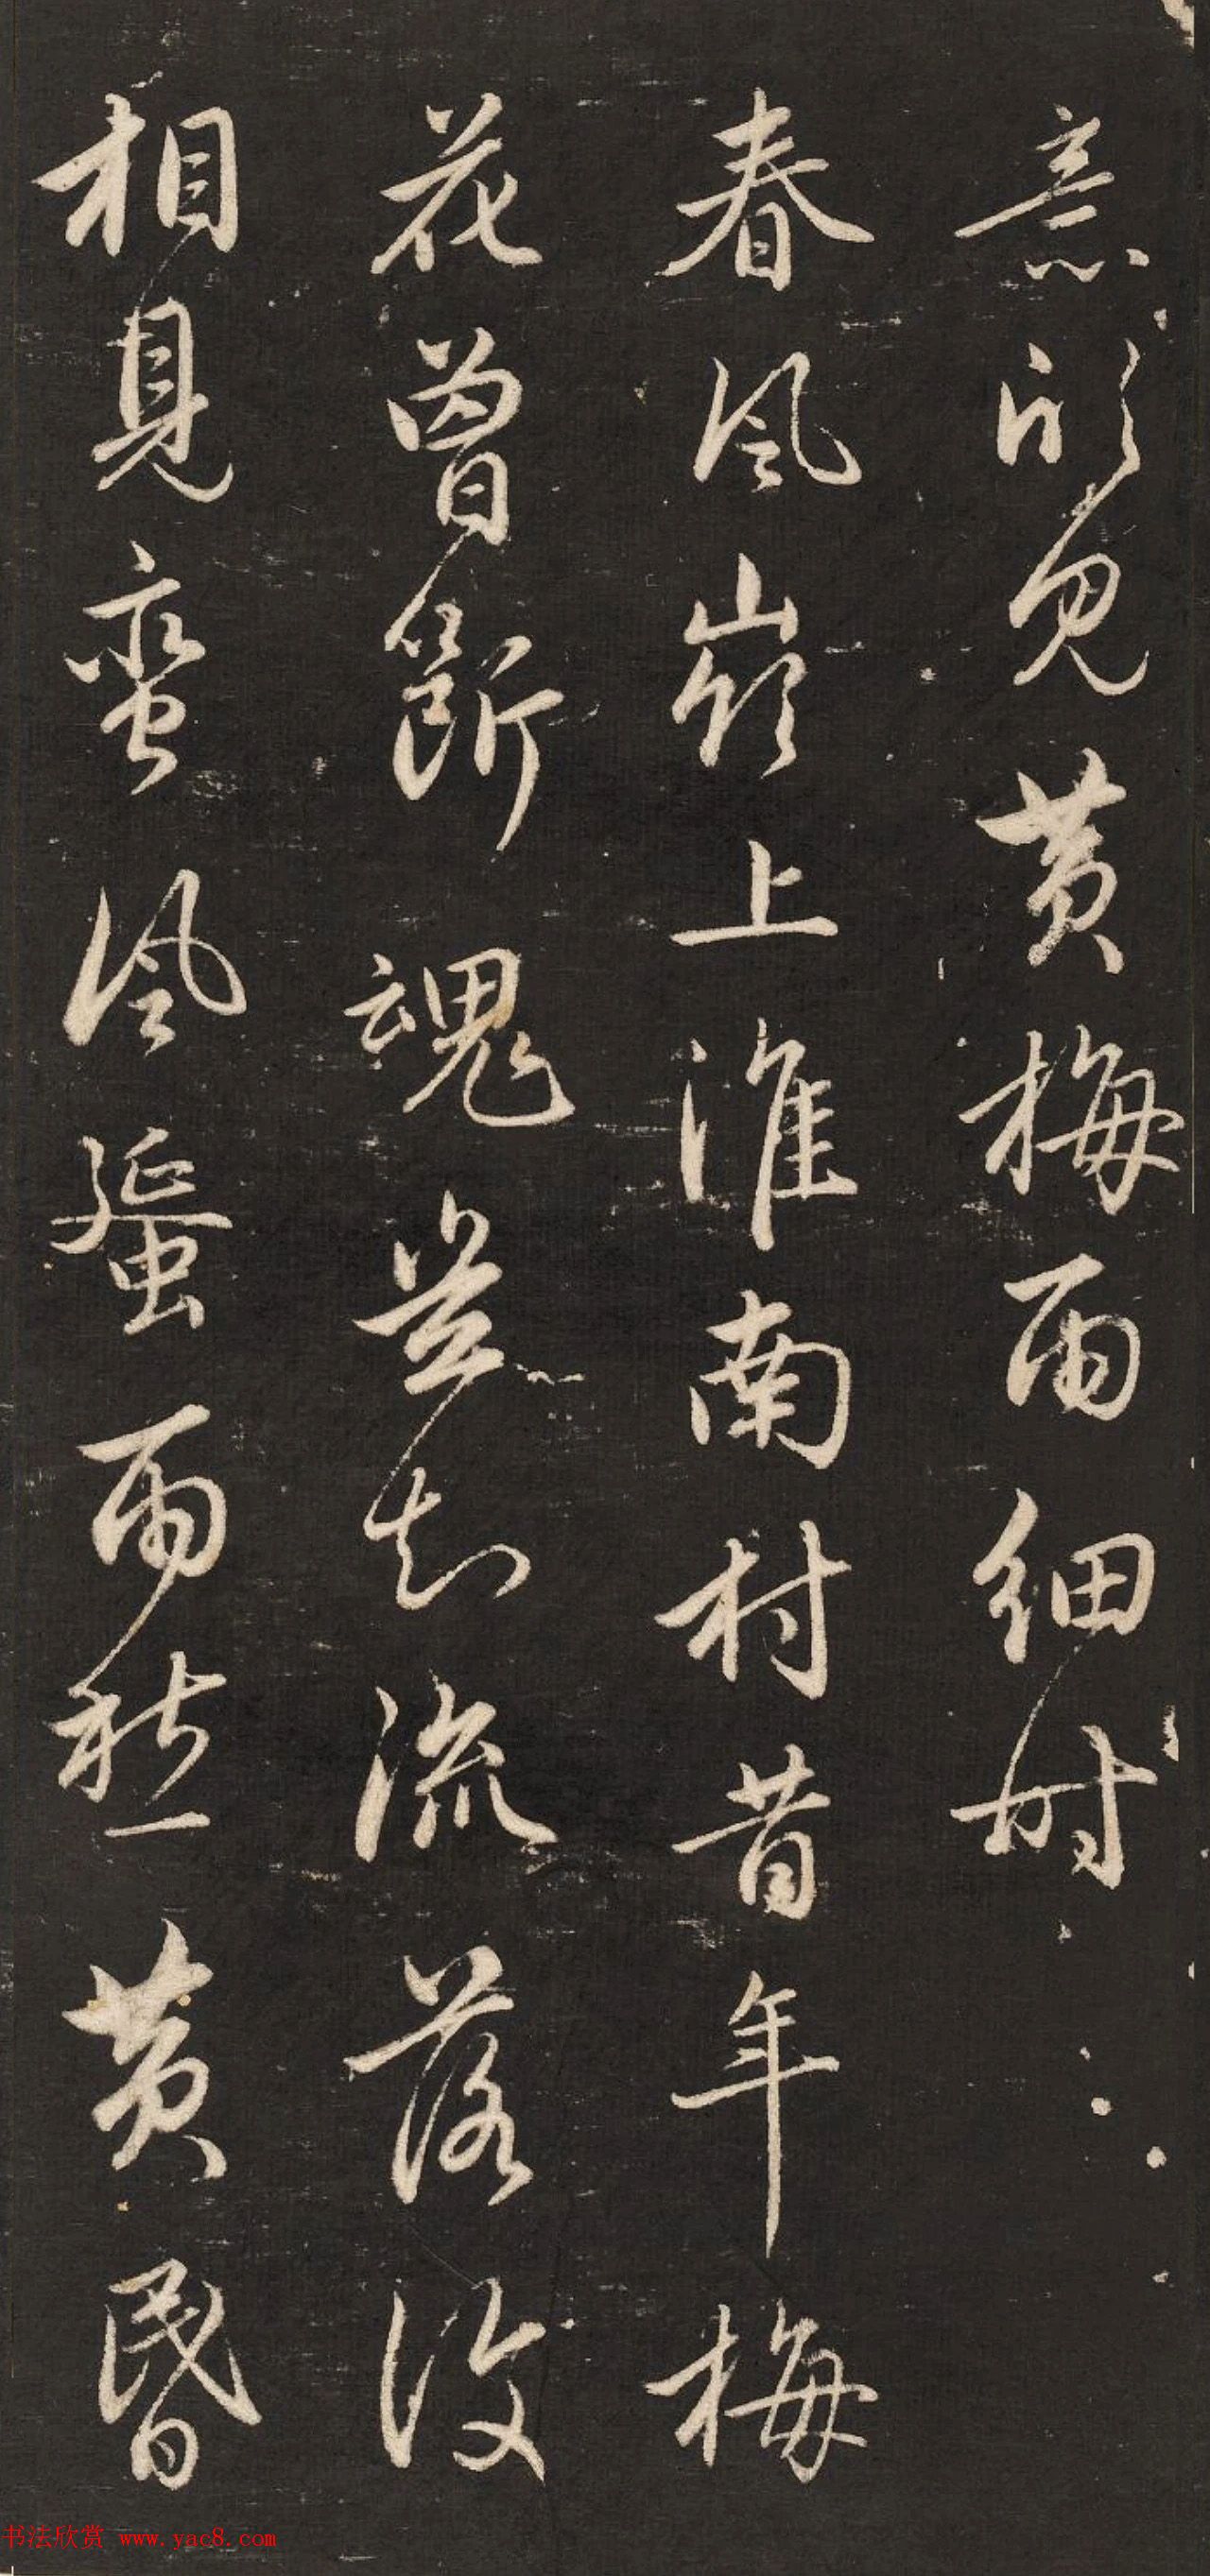 意見黄梅雨細時
春風嶺上淮南村昔年梅
花曾斷魂豈知流落復
相見蠻風蜑雨愁黄昏
书法欣赏 www.yac8.com